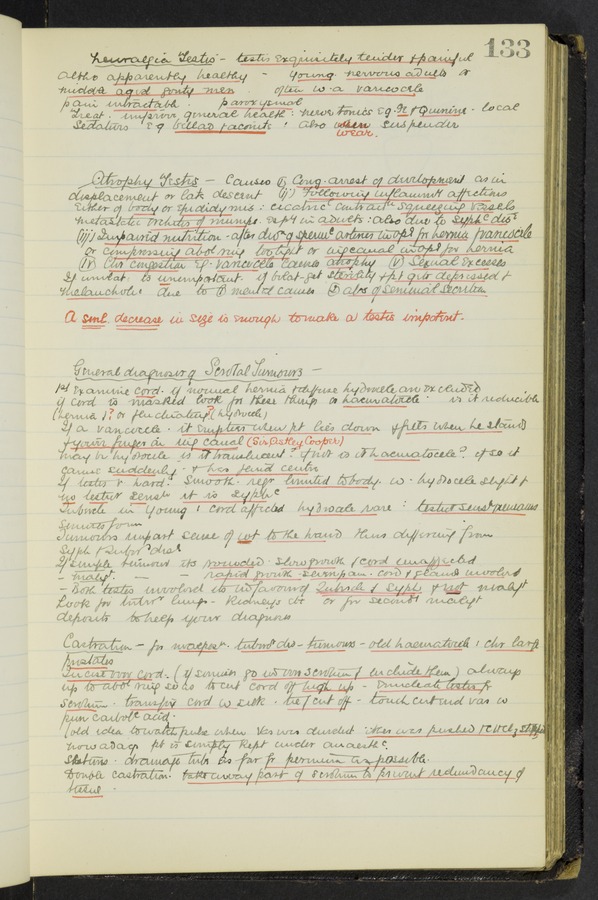 133
Neuralgia Testis - testis exquisitely tender & painful
altho apparently healthy - young nervous adults or
middle aged gouty men. often w. a varicocele
pain intractable. paroxysmal
Treat. improve general health: nerve tonics e.g. Fe & Quinine. local
Sedatives e.g. bellad & aconite: also wear suspender
Atrophy Testis - Causes (i) Cong. arrest of development as in
displacement or late descent (ii) Following inflammy affections
either of body or epididymis: cicatric contract squeezing vessels
metastatic orchitis of mumps. esply in adults: also due to syphc disc
(iii) Impaired nutrition - after divn of spermc arteries in opn for hernia & varicocele
or compressing abdl ring too tight or ing canal in opn for hernia
(iv) Chr congestion e.g. varicocele causes atrophy (v) Sexual excesses
If unilat. is unimportant. if bilat get sterility & pt gets depressed &
melancholic due to (1) mental causes (2) abs of seminal secretion
A sml. decrease in size is enough to make a testis impotent.
General diagnosis of Scrotal Tumours -
1st Examine cord. if normal hernia & diffuse hydrocele are excluded
if cord is masked look for these things or haematocele. is it reducible
(hernia)? or fluctuating? (hydrocele)
If a varicocele. it empties when pt lies down & fills when he stands
& your finger in ing canal (Sir Astley Cooper)
may be hydrocele is it translucent? if not is it haematocele? if so it
came suddenly. & has fluid centre
If testes & hard. smooth. regr limited to body. w. hydrocele slight &
no testicr sensn it is syphc
Tubercle in young: cord affected hydrocele rare: testicr sensn remains
Tumours impart sense of wt to the hand thus differing from
Syph & tubrs dis
If simple tumour its rounded. slow growth & cord unaffected
- maligt. - - rapid growth
- Both testes involved is in favour of Tubercle & syph & not maligt
Look for tubr lungs. Kidneys etc or for second maligt
deposits to help your diagnosis
Castration - for tubrs dis - tumours - old haematocele: chr large
prostates
Incise over cord. always
up to abdl ring so as to cut cord off high up - Enucleate testis fr
scrotum. transfix cord w silk. tie & cut off - touch cut end vas w
pure carbolc acid.
(old idea to watch pulse when vas was divided
nowadays pt is simply kept under anaesthc.
Sutures. drainage tube as far fr perineum as possible.
Double castration. take away part of scrotum to prevent redundancy of
tissue.